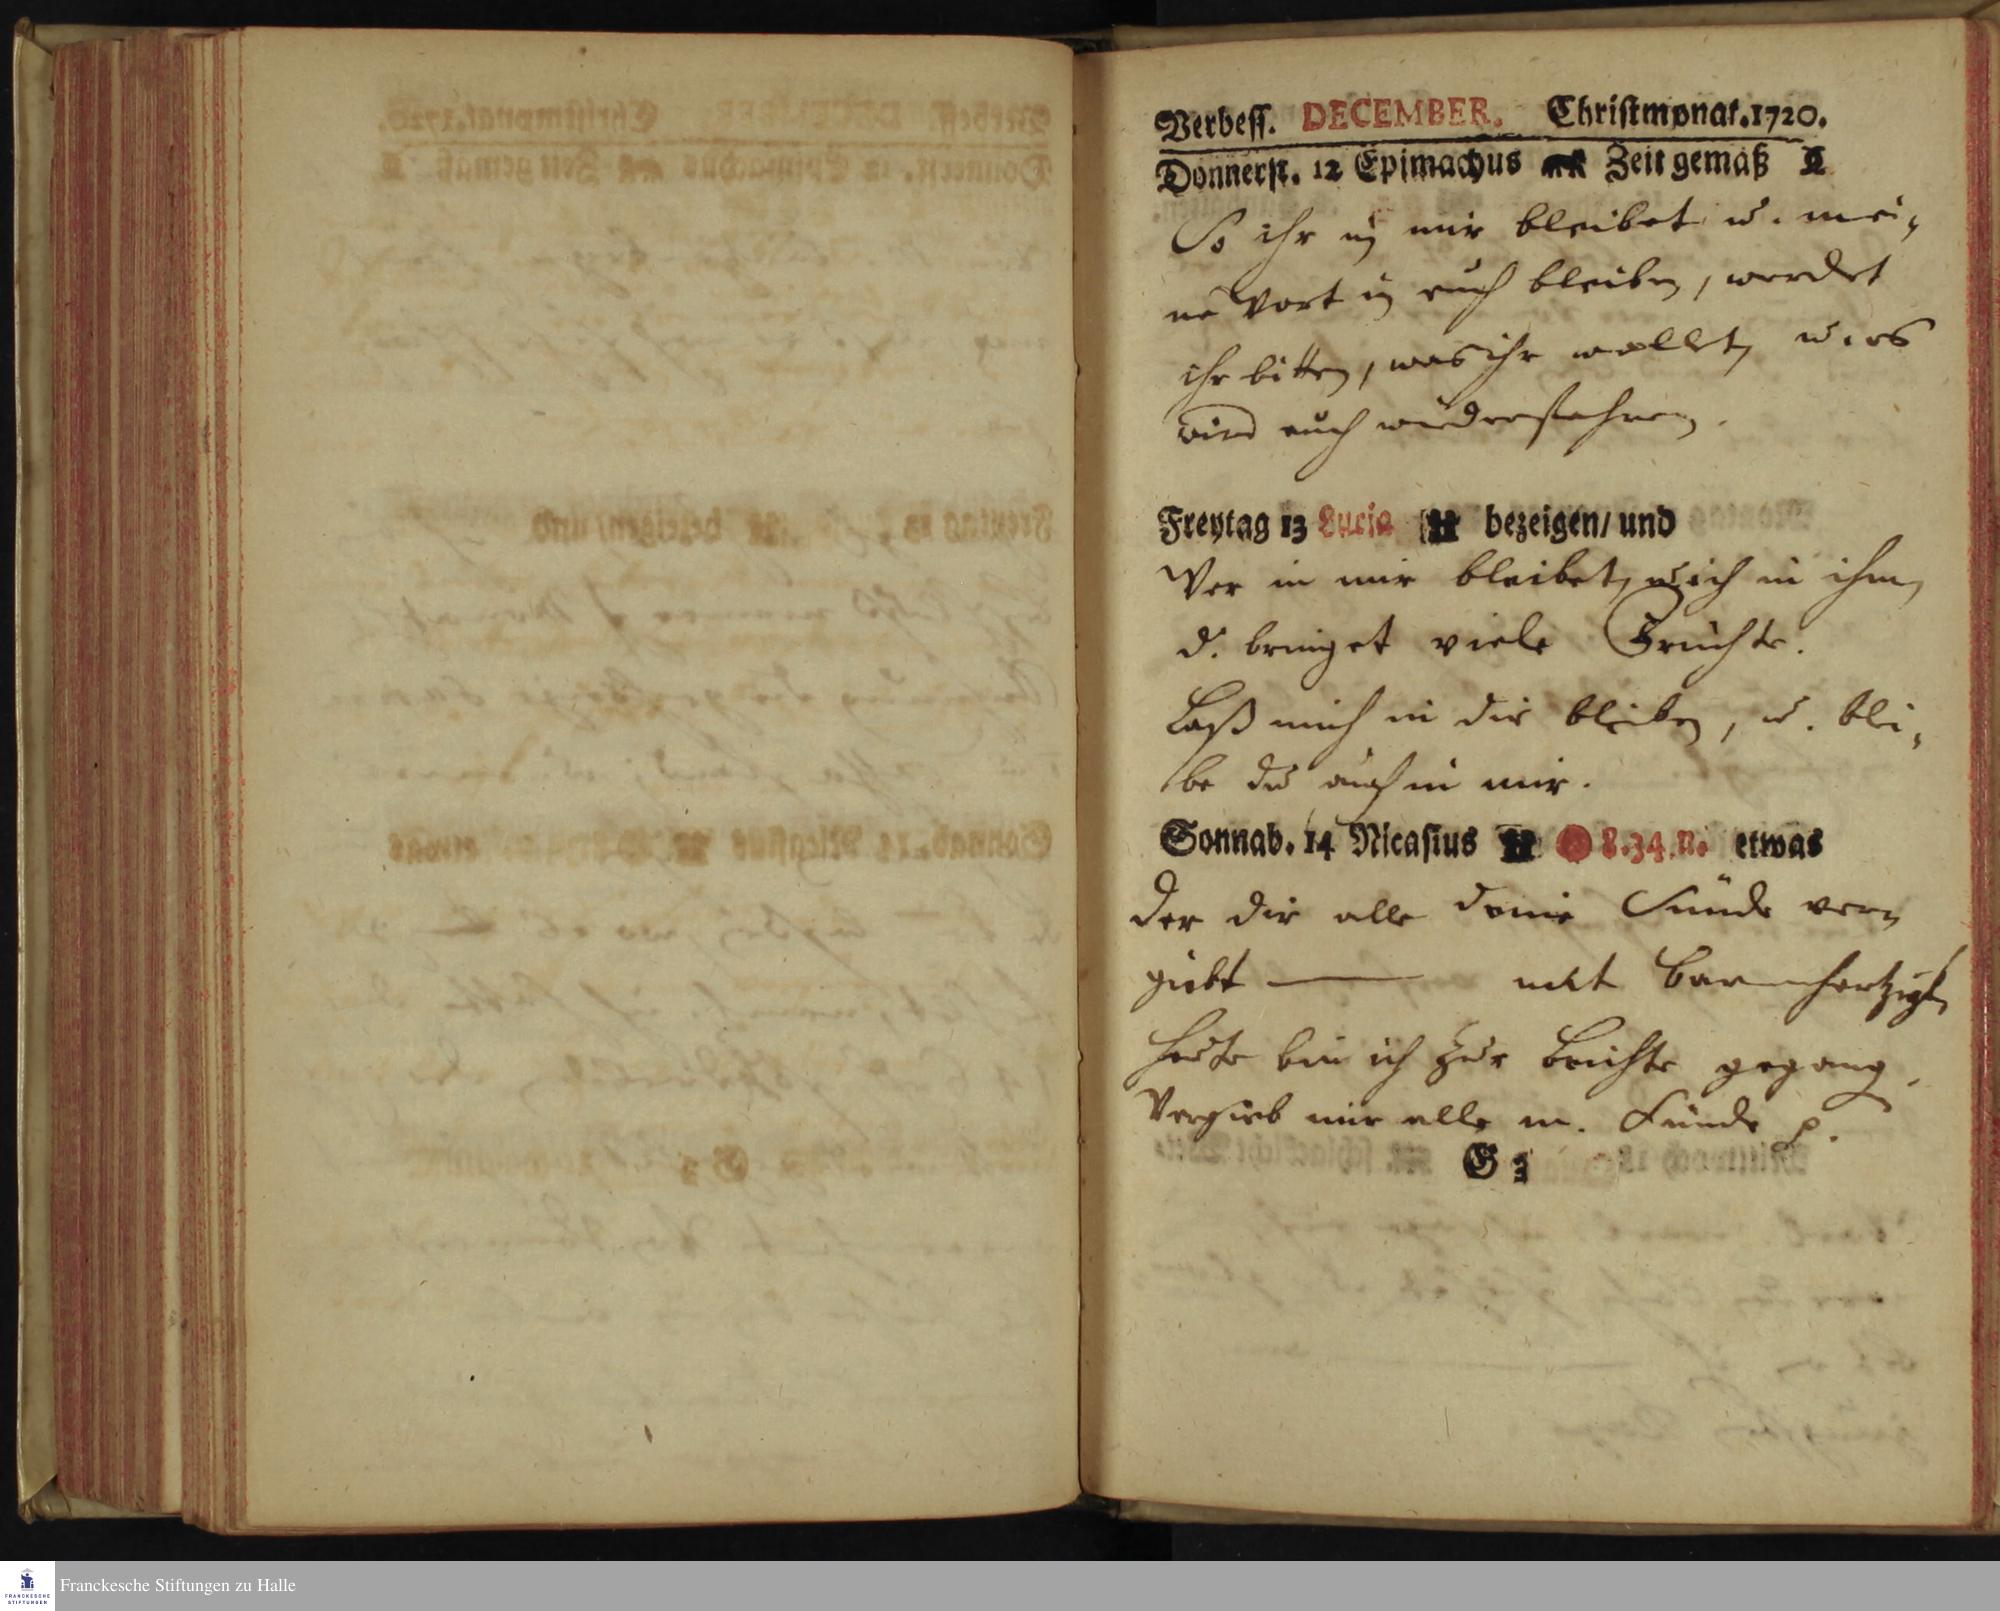 Verbess. DECEMBER. Christmonat. 1720.
Donnerst. 12 Epimachus Zeit gemäß
So ihr in mir bleibet u. mei-
ne Wort in euch bleiben, werdet
ihr bitten, was ihr wollet, u. es
wird euch wiederfahren.
Freytag 13 Lucia bezeigen/ und
Wer in mir bleibet, u. ich in ihm,
d. bringet viele Früchte.
Laß mich in dir bleiben, u. blei-
be du auch in mir.
Sonnab. 14 Nicasius 8.34. N. etwas
Der dir alle deine Sünde ver-
giebt — mit Barmhertzigk
Heute bin ich zur Beichte gegang.
Vergieb mir alle m. Sünde p.
G 3
Franckesche Stiftungen zu Halle
FRANCKESCHE
STIFTUNGEN